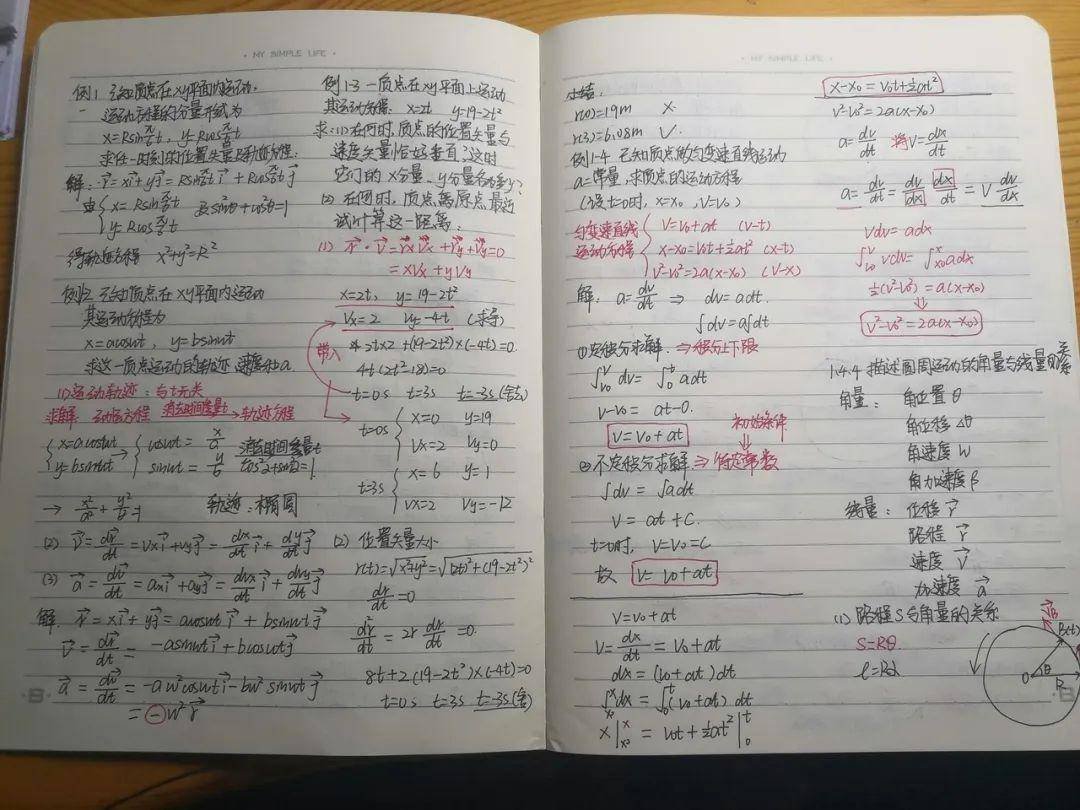 · MY SIMPLE LIFE ·
例1 已知质点在xy平面内运动,
运动方程的分量形式为
x=Rsin π/6 t, y=Rcos π/6 t
求任一时刻的位置矢量及轨迹方程.
解: r⃗=xi⃗+yj⃗=Rsin π/6 t i⃗+Rcos π/6 t j⃗
由{x=Rsin π/6 t
y=Rcos π/6 t
及sin²t+cos²t=1
得轨迹方程 x²+y²=R²
例1-2 已知质点在xy平面内运动
其运动方程为
x=acosωt, y=bsinωt
求这一质点运动的轨迹,速度和a.
(1)运动轨迹:与t无关
求解 运动方程 消去时间变量t→轨迹方程
{x=acosωt
y=bsinωt
→{cosωt=x/a
sinωt=y/b
消去时间变量t
cos²+sin²=1
→ x²/a²+y²/b²=1 轨迹:椭圆
(2) v⃗=dr⃗/dt=vxi⃗+vyj⃗=dx/dt i⃗+dy/dt j⃗
(3) a⃗=dv⃗/dt=axi⃗+ayj⃗=dvx/dt i⃗+dvy/dt j⃗
解. r⃗=xi⃗+yj⃗=acosωt i⃗+bsinωt j⃗
v⃗=dr⃗/dt=-asinωt i⃗+bcosωt j⃗
a⃗=dv⃗/dt=-aω²cosωt i⃗-bω²sinωt j⃗
=-ω²r⃗
例1-3 一质点在xy平面上运动
其运动方程: x=2t y=19-2t²
求:(1)在何时,质点的位置矢量与
速度矢量恰好垂直?这时
它们的x分量、y分量各为多少?
(2)在何时,质点离原点最近
试计算这一距离.
(1) r⃗·v⃗=r⃗xv⃗x+r⃗yv⃗y=0
=xvx+yvy
x=2t, y=19-2t²
vx=2 vy=-4t (求导)
带入
2t×2+(19-2t²)×(-4t)=0.
4t(2t²-18)=0
t=0s t=3s t=-3s(舍去)
t=0s {x=0 y=19
vx=2 vy=0
t=3s {x=6 y=1
vx=2 vy=-12
(2) 位置矢量大小
r(t)=√x²+y²=√(2t)²+(19-2t²)²
dr/dt=0
dr²/dt=2r dr/dt=0.
8t+2(19-2t²)×(-4t)=0
t=0s t=3s t=-3s(舍)
· MY SIMPLE LIFE ·
小结:
r(0)=19m ×
r(3)=6.08m √.
例1-4 已知质点做匀变速直线运动
a=常量,求质点的运动方程
(设t=0时, x=x₀, v=v₀)
匀变速直线
运动方程
{v=v₀+at (v-t)
x-x₀=v₀t+½at² (x-t)
v²-v₀²=2a(x-x₀) (v-x)
解: a=dv/dt ⇒ dv=adt.
∫dv=a∫dt
①定积分求解. ⇒积分上下限
∫v₀^v dv=∫0^t adt
v-v₀=at-0.
v=v₀+at
初始条件
②不定积分求解⇒待定常数
∫dv=∫adt
v=at+c.
t=0时, v=v₀=c
故 v=v₀+at
v=v₀+at
v=dx/dt=v₀+at
dx=(v₀+at)dt
∫x₀^x dx=∫0^t(v₀+at)dt
x|x₀^x=v₀t+½at²|0^t
x-x₀=v₀t+½at²
v²-v₀²=2a(x-x₀)
a=dv/dt 将v=dx/dt
a=dv/dt=dv/dx dx/dt=v dv/dx
vdv=adx
∫v₀^v vdv=∫x₀^x adx
½(v²-v₀²)=a(x-x₀)
v²-v₀²=2a(x-x₀)
1.4.4 描述圆周运动的角量与线量的关系
角量: 角位置θ
角位移Δθ
角速度ω
角加速度β
线量: 位移r⃗
路程r⃗
速度v⃗
加速度a⃗
(1) 路程S与角量的关系
S=Rθ
l=Rα
v⃗B
B(t)
O θ R